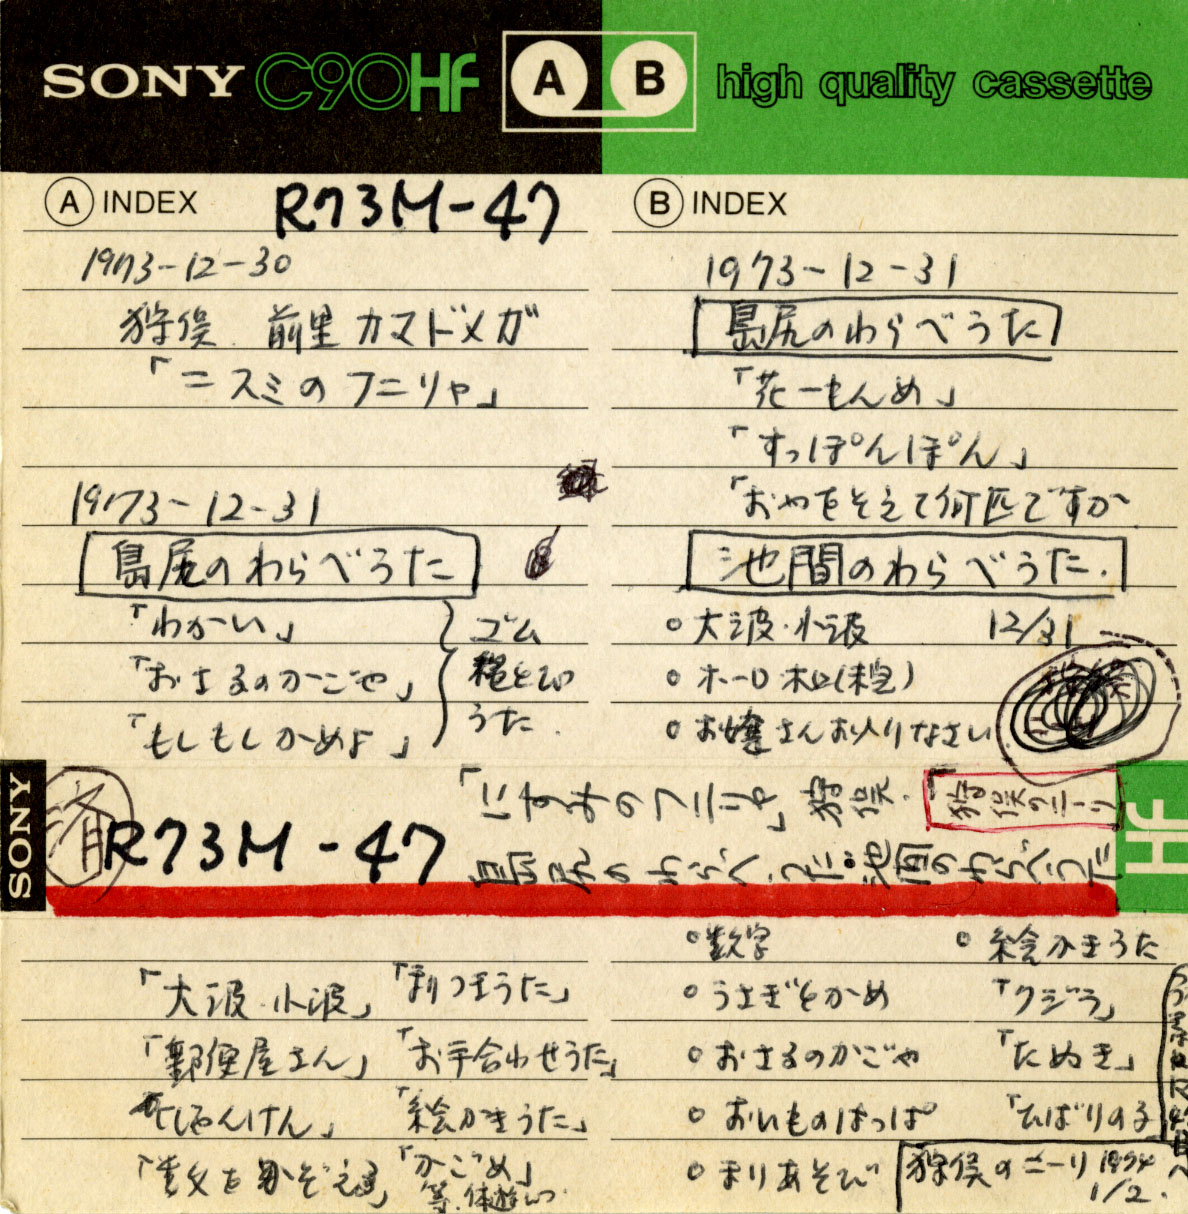 SONY C90HF A B high quality cassette
A INDEX R73M-47
1973-12-30
狩俣 前里カマドメガ
「ニスミのフニリャ」
1973-12-31
島尻のわらべうた
「わかい」
「おさるのかごや」
「もしもしかめよ」
ゴム
縄とび
うた
B INDEX
1973-12-31
島尻のわらべうた
「花一もんめ」
「すっぽんぽん」
「おやをそえて何匹ですか
池間のわらべうた.
○大波・小波 12/31
○ホーロ・木口(未完)
○お嬢さんお入りなさい
SONY
済
R73M-47
「にすみのフニリャ」狩俣.
狩俣ニーリ
島尻のわらべうた。池間のわらべうた
HF
「大波・小波」「まりつきうた」
「郵便屋さん」「お手合わせうた」
「じゃんけん」「絵かきうた」
「数をかぞえる」「かごめ」
等、体遊びつ
○数字 ○絵かきうた
○うさぎとかめ 「クジラ」
○おさるのかごや 「たぬき」
○おいものはっぱ 「ひばりの子
○まりあそび
狩俣のニーリ 1974
1/2.